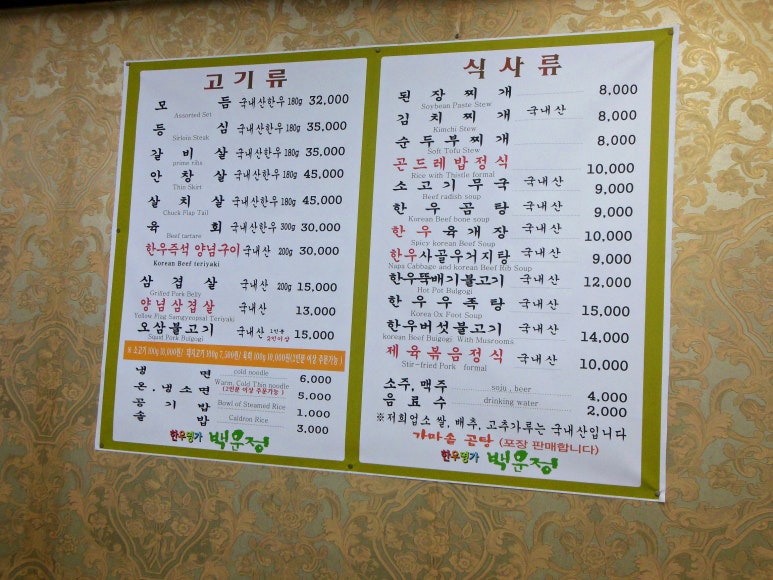 고기류
모듬 국내산한우 180g 32,000
Assorted Set
등심 국내산한우 180g 35,000
Sirloin Steak
갈비살 국내산한우 180g 35,000
prime ribs
안창살 국내산한우 180g 45,000
Thin Skirt
살치살 국내산한우 180g 45,000
Chuck Flap Tail
육회 국내산한우 300g 30,000
Beef tartare
한우즉석 양념구이 국내산 200g 30,000
Korean Beef teriyaki
삼겹살 국내산 200g 15,000
Grilled Pork Belly
양념삼겹살 국내산 13,000
Yellow Fing Samgyeopsal Teriyaki
오삼불고기 국내산 1인분 2인이상 15,000
Squid Pork Bulgogi
※ 소고기 100g 18,000원/ 돼지고기 100g 7,500원/ 육회 100g 10,000원(2인분 이상 주문가능)
냉면 cold noodle 6,000
온,냉소면 Warm, Cold Thin noodle 5,000
(2인분 이상 주문가능)
공기밥 Bowl of Steamed Rice 1,000
솥밥 Caldron Rice 3,000
한우명가 백운정
식사류
된장찌개 8,000
Soybean Paste Stew
김치찌개 국내산 8,000
Kimchi Stew
순두부찌개 8,000
Soft Tofu Stew
곤드레밥정식 10,000
Rice with Thistle formal
소고기무국 국내산 9,000
Beef radish soup
한우곰탕 국내산 9,000
Korean Beef bone soup
한우육개장 국내산 10,000
Spicy korean Beef Soup
한우사골우거지탕 국내산 9,000
Napa Cabbage and korean Beef Rib Soup
한우뚝배기불고기 국내산 12,000
Hot Pot Bulgogi
한우우족탕 국내산 15,000
Korea Ox Foot Soup
한우버섯불고기 국내산 14,000
korean Beef Bulgogi With Musrooms
제육볶음정식 국내산 10,000
Stir-fried Pork formal
소주, 맥주 soju , beer 4,000
음료수 drinking water 2,000
※저희업소 쌀, 배추, 고추가루는 국내산입니다
가마솥 곤탕 (포장 판매합니다)
한우명가 백운정